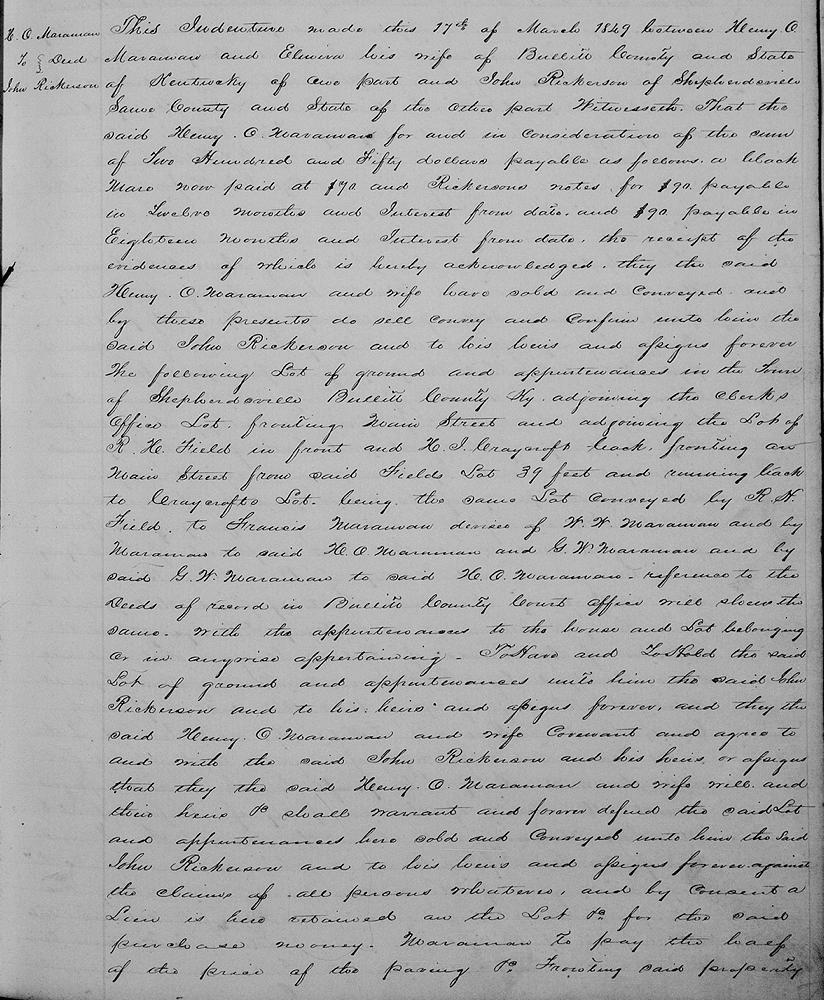 H. O. Maraman
To } Deed
John Rickerson
This Indenture made this 17th of March 1849 between Henry O
Maraman and Elmira his wife of Bullitt County and State
of Kentucky of one part and John Rickerson of Shepherdsville
Same County and State of the other part Witnesseth. That the
said Henry. O. Maraman for and in Consideration of the sum
of Two Hundred and Fifty dollars payable as follows. a black
Mare now paid at $70 and Rickersons notes for $90. payable
in Twelve months and Interest from date. and $90 payable in
Eighteen months and Interest from date. the receipt of the
evidences of which is hereby acknowledged. they the said
Henry. O. Maraman and wife have sold and Conveyed and
by these presents do sell Convey and Confirm unto him the
said John Rickerson and to his heirs and assigns forever
The following Lot of ground and appurtenances in the Town
of Shepherdsville Bullitt County Ky. adjoining the Clerks
Office Lot. fronting Main Street and adjoining the Lot of
R. H. Field in front and H. I. Craycroft back. fronting on
Main Street from said Fields Lot 39 feet and running back
to Craycrofts Lot. being the same Lot Conveyed by R. H.
Field. to Francis Maraman devisee of W. W. Maraman and by
Maraman to said H. O. Maraman and G. W. Maraman and by
said G. W. Maraman to said H. O. Maraman - reference to the
Deeds of record in Bullitt County Court office will shew the
same. with the appurtenances to the house and Lot belonging
or in anywise appertaining - To Have and To Hold the said
Lot of ground and appurtenances unto him the said John
Rickerson and to his heirs and assigns forever, and they the
said Henry. O. Maraman and wife Covenant and agree to
and with the said John Rickerson and his heirs or assigns
that they the said Henry. O. Maraman and wife will and
their heirs &c shall warrant and forever defend the said Lot
and appurtenances here sold and Conveyed unto him the said
John Rickerson and to his heirs and assigns forever against
the claims of all persons whatever, and by Consent a
Lien is here retained on the Lot &c for the said
purchase money. Maraman to pay the half
of the price of the paving &c Fronting said property